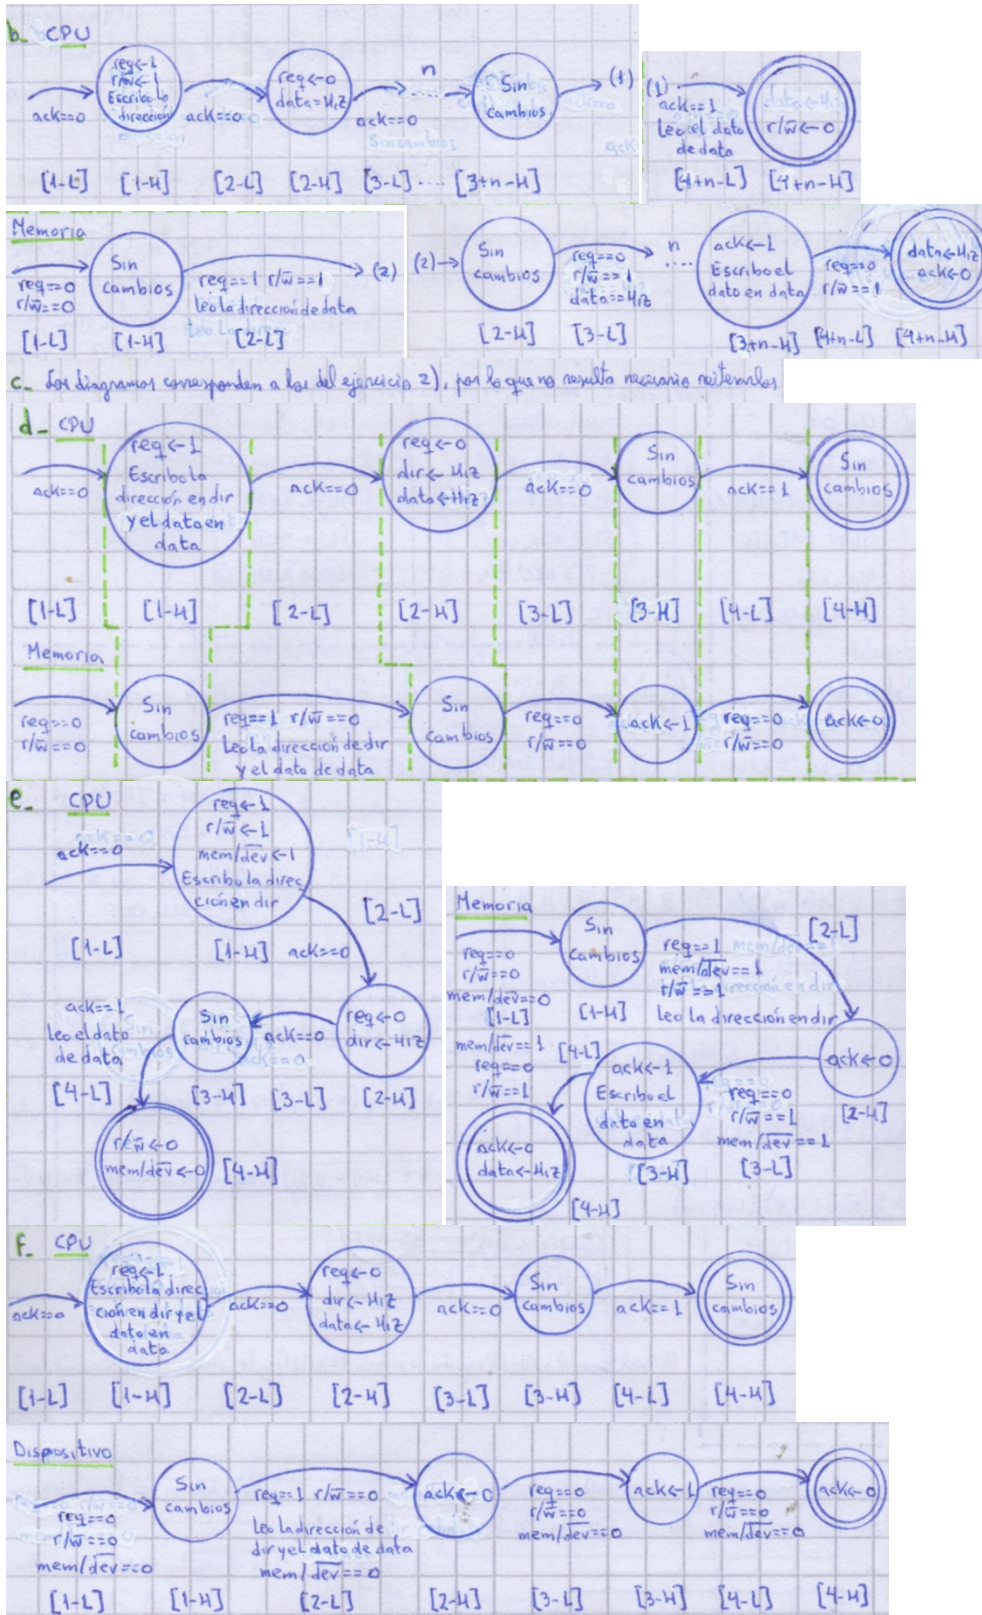 b_ CPU
ack==0
req<-1
r/w̅<-1
Escribo la
dirección
ack==0
req<-0
data=HiZ
ack==0
n
....
Sin
cambios
(1)
[1-L] [1-H] [2-L] [2-H] [3-L] .... [3+n-H]
(1)
ack==1
Leo el dato
de data
r/w̅<-0
[4+n-L] [4+n-H]
Memoria
req==0
r/w̅==0
Sin
cambios
req==1 r/w̅==1
Leo la dirección de data
(2)
[1-L] [1-H] [2-L]
(2)
Sin
cambios
req==0
r/w̅==1
data==HiZ
n
....
ack<-1
Escribo el
dato en data
req==0
r/w̅==1
data<-HiZ
ack<-0
[2-H] [3-L] [3+n-H] [4+n-L] [4+n-H]
c_ Los diagramas corresponden a los del ejercicio 2), por lo que no resulta necesario reiterarlos
d_ CPU
ack==0
req<-1
Escribo la
dirección en dir
y el dato en
data
ack==0
req<-0
dir<-HiZ
data<-HiZ
ack==0
Sin
cambios
ack==1
Sin
cambios
[1-L] [1-H] [2-L] [2-H] [3-L] [3-H] [4-L] [4-H]
Memoria
req==0
r/w̅==0
Sin
cambios
req==1 r/w̅==0
Leo la dirección de dir
y el dato de data
Sin
cambios
req==0
r/w̅==0
ack<-1
req==0
r/w̅==0
ack<-0
e_ CPU
ack==0
req<-1
r/w̅<-1
mem/d̅e̅v̅<-1
Escribo la direc
ción en dir
[2-L]
[1-L] [1-H] ack==0
req<-0
dir<-HiZ
ack==0
Sin
cambios
ack==1
Leo el dato
de data
[4-L] [3-H] [3-L] [2-H]
r/w̅<-0
mem/d̅e̅v̅<-0
[4-H]
Memoria
req==0
r/w̅==0
mem/d̅e̅v̅==0
[1-L]
Sin
cambios
[1-H]
req==1
mem/d̅e̅v̅==1
r/w̅==1
Leo la dirección en dir
[2-L]
ack<-0
[2-H]
req==0
r/w̅==1
mem/d̅e̅v̅==1
[3-L]
ack<-1
Escribo el
dato en
data
[3-H]
mem/d̅e̅v̅==1
req==0
r/w̅==1
[4-L]
ack<-0
data<-HiZ
[4-H]
f_ CPU
ack==0
req<-1
Escribo la direc
ción en dir y el
dato en
data
ack==0
req<-0
dir<-HiZ
data<-HiZ
ack==0
Sin
cambios
ack==1
Sin
cambios
[1-L] [1-H] [2-L] [2-H] [3-L] [3-H] [4-L] [4-H]
Dispositivo
req==0
r/w̅==0
mem/d̅e̅v̅==0
Sin
cambios
req==1 r/w̅==0
Leo la dirección de
dir y el dato de data
mem/d̅e̅v̅==0
ack<-0
req==0
r/w̅==0
mem/d̅e̅v̅==0
ack<-1
req==0
r/w̅==0
mem/d̅e̅v̅==0
ack<-0
[1-L] [1-H] [2-L] [2-H] [3-L] [3-H] [4-L] [4-H]